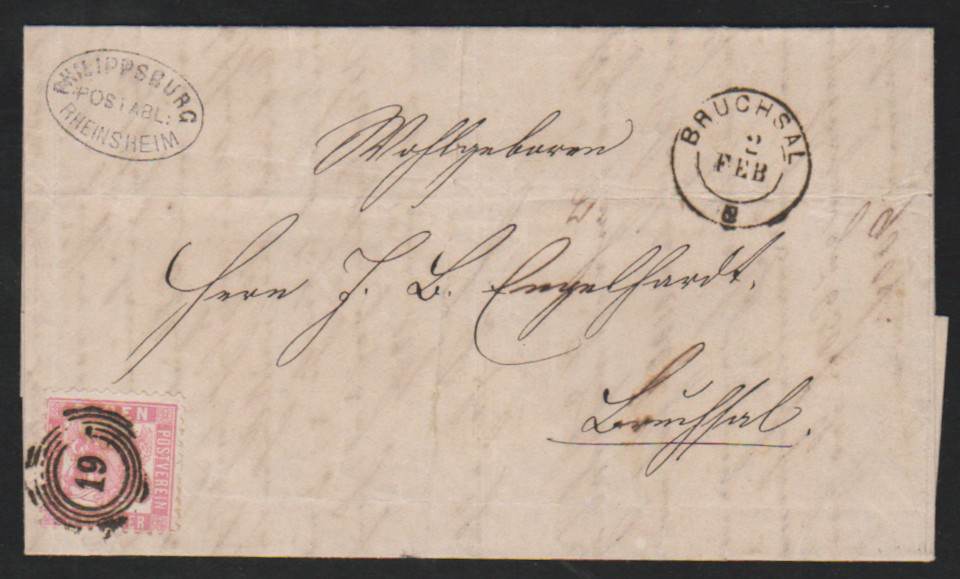 PHILIPPSBURG
POSTABL:
RHEINSHEIM
BRUCHSAL
2
FEB
Wohlgeboren
Herrn J. B. Engelhardt,
Bruchsal.
POSTVEREIN
19